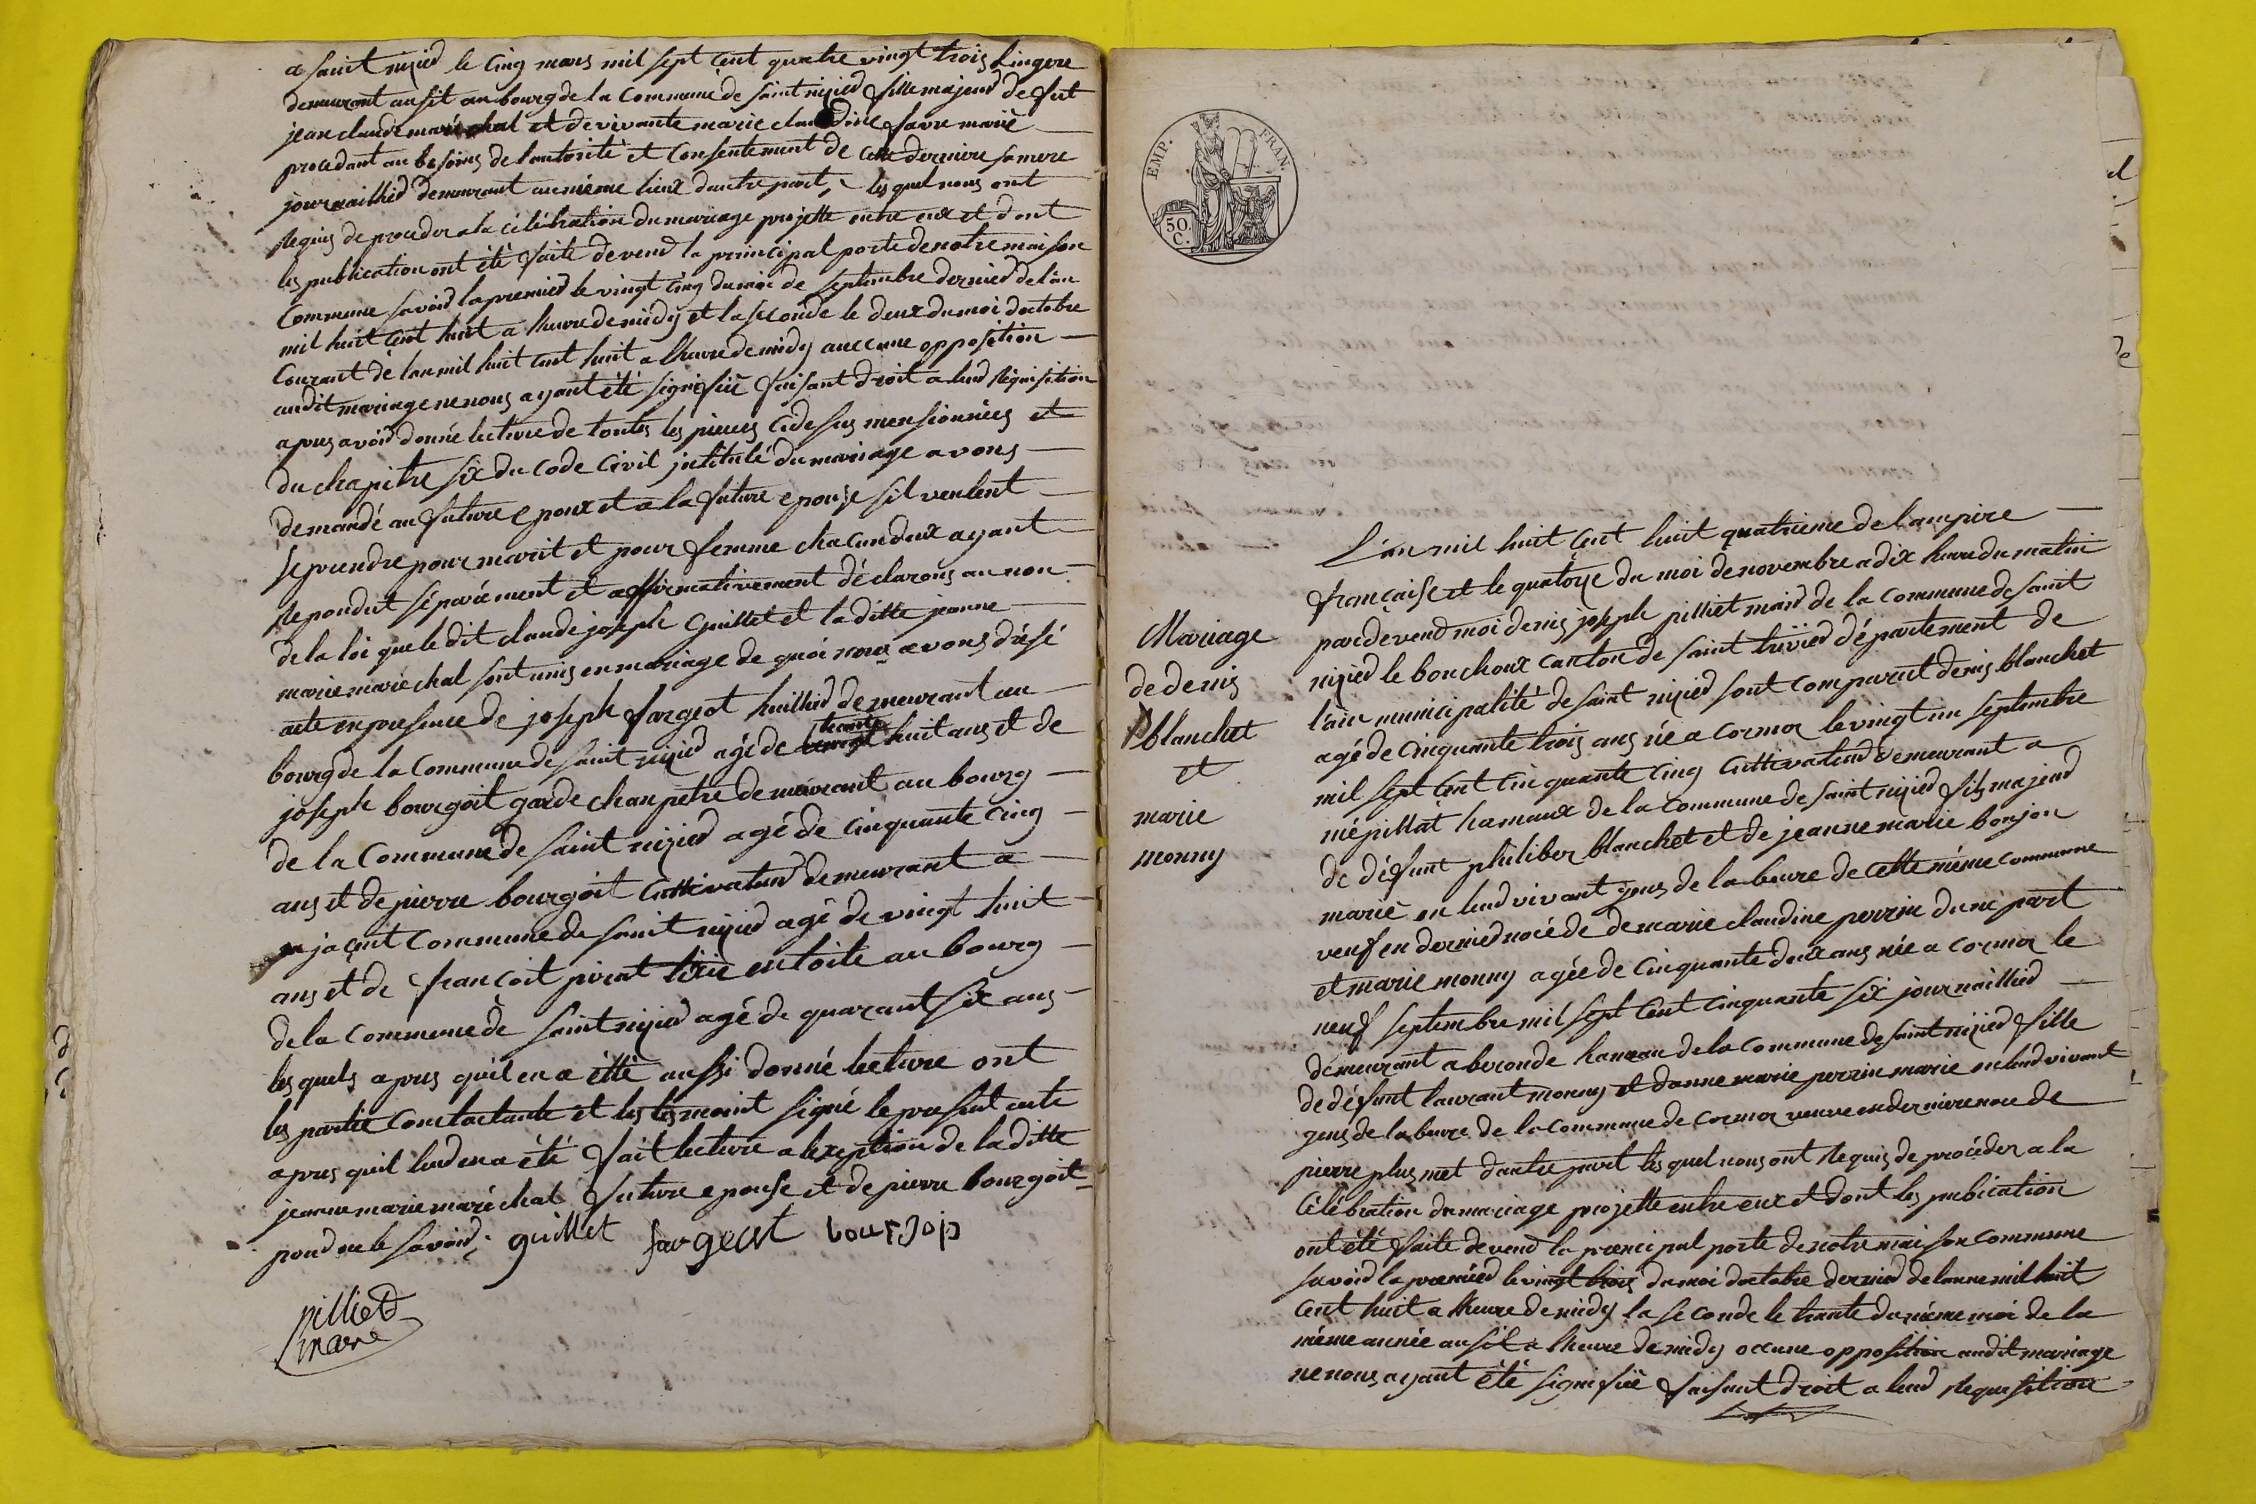 a saint nizied le cinq mars mil sept cent quatre vingt trois lingere
demeurant ausit au bourg de la commune de saint nizied fille majeur de fut
jean claude marechal et de vivante marie claudine favre marié
procedant au besoins de l'autorité et consentement de cette derniere sa mere
journaillied demeurant au méme lieux d'autre part, les quel nous ont
Requis de proceder a la célébration du mariage projette entre eux et dont
les publication ont été faite devend la principal porte de notre maison
commune savoid la premied le vingt cinq du moi de septembre dernied de l'an
mil huit cent huit a lheure de midy et la seconde le deux du moi doctobre
courant de lan mil huit cent huit a lheure de midy auccune opposition
audit mariage ne nous ayant été signifiié faisant droit a leud Réquisition
apres avoid donné lecture de toutes les pieces cidesus mensionnées et
du chapitre six du code civil jntitulé du mariage avons
demandé au future epoux et a la future epouse sil veulent
se prendre pour marit et pour femme chacun deux ayant
Repondut séparément et affirmativement déclarons au non
de la loi que le dit claude joseph Guillet et la ditte jeanne
marie marechal sont unis en mariage de quoi nous avons drésé
acte en presence de joseph fargeot huillied demeurant au
bourg de la commune de saint nizied agé de trante huit ans et de
joseph bourgoit garde chanpetre demeurant au bourg
de la commune de saint nizied agé de cinquante cinq
ans et de pierre bourgoit cuttivateur demeurant a
jaçeit commune de saint nizied agé de vingt huit
ans et de françoit pirat en toite au bourg
de la commune de saint nizied agé de quarant six ans
les quels apres quil en a été aussi donné lecture ont
les partie contactante et les tesmoint signé le present acte
apres quil leud en a été fait lecture a lexeption de la ditte
jeanne marie maréchal future epouse et de pierre bourgoit
poud ne le savoid. guillet fargeot bourgois
pilliet
maire
EMP. FRAN.
50.
C.
Mariage
de denis
blanchet
et
marie
monny
L'an mil huit cent huit quatrieme de lampire
française et le quatorze du moi de novembre a dix heure du matin
pardevend moi denis joseph pilliet maid de la commune de saint
nizied le bouchoux canton de saint trivied département de
l'ain municipalité de saint nizied sont comparut denis blanchet
agé de cinquante trois ans né a cormoz le vingt un septembre
mil sept cent cinquante cinq cuttivateur demeurant a
mépillat hamaux de la commune de saint nizied fils majeud
de défunt philiber blanchet et de jeanne marie bonjon
marié en leud vivant gens de la beure de cette même commune
veuf en dernied nocé de de marie claudine perrin dune part
et marie monny agée de cinquante deux ans née a cormoz le
neuf septembre mil sept cent cinquante six journaillied
demeurant a beronde hameau de la commune de saint nizied fille
de défunt laurant monny et danne marie perrin marie en leud vivant
gens de la beure de la commune de cormoz veuve en derniere noce de
pierre plus met dautre part les quel nous ont Requis de procéder a la
célébration du mariage projette entre eux et dont les publication
ont été faite devend la principal porte de notre maison commune
savoid la premied le vingt trois du moi doctobre dernied de lanne mil huit
cent huit a lheure de midy la seconde le trante du méme moi de la
même année ausit a lheure de midy occune opposition audit mariage
ne nous ayant été signifiié faisant droit a leud Requisition